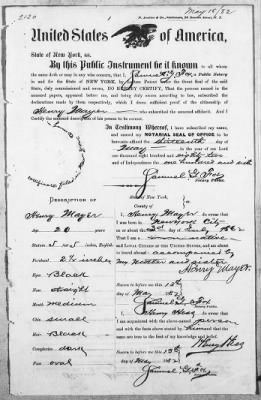 2120
May 18/82
United States of America.
State of New York, ss.
By this Public Instrument be it known to all
whom the same doth or may in any wise concern, that I, Samuel G. Fox, a Public Notary
in and for the State of NEW YORK, by Letters Patent under the Great Seal of the said
State, duly commissioned and sworn, DO HEREBY CERTIFY, That the persons named in the
annexed papers, appeared and being duly sworn according to law, subscribed the
declarations made by them respectively, which I deem sufficient proof of the citizenship of
Henry Mayer who subscribed the annexed affidavit. And I
Certify the annexed description of his person to be correct.
In Testimony Whereof, I have subscribed my name,
and caused my NOTARIAL SEAL OF OFFICE to be
hereunto affixed the sixteenth day of
May in the year of our Lord
one thousand eight hundred and eighty two
and of Independence the one hundred and sixth
Samuel G. Fox
Notary Public.
Description of
Henry Mayer
Age 20 years
Stature 5 feet 5 inches, English
Forehead 2 ½ inches
Eyes Black
Nose straight
Mouth medium
Chin small
Hair Black
Complexion dark
Face oval
State of New York,
County of
I, Henry Mayer, do swear
that I was born in New York City
on or about the day of July 1862
That I am a native
and LOYAL CITIZEN of the UNITED STATES, and am about
to travel abroad accompanied by
my mother and sister
Henry Mayer.
Sworn to before me this 15th
day of May 1882
Samuel G. Fox
I, Henry Hess do swear that
I am acquainted with the above named person
and with the facts above stated by himself and that the same
are true to the best of my knowledge and belief.
Henry Hess
Sworn to before me this 15th
day of May 1882
Samuel G. Fox